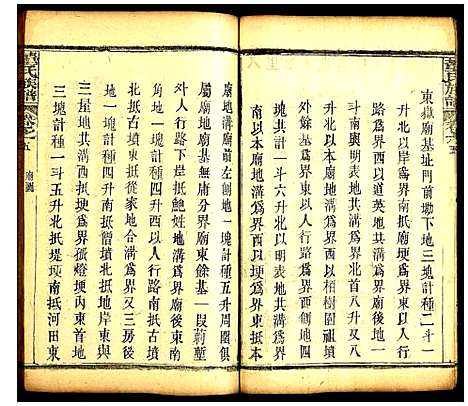 董氏族譜 卷之五
東嶽廟基址門前墈下地三塊計種二斗一
升北以岸爲界東以人行路
爲界西以道英地溝爲界北首八升又八
南與明表地共溝爲界升以栢樹園祖墳
外餘基爲界東以人行路爲界西創地四
共計一斗六升北以明表地共溝爲界
南以本廟地溝爲界西以埂爲界東抵本
廟地溝廟前左創地一塊計種五升周圍俱
屬廟地無庸分界廟東餘基一段前塹
外人行路南抵鮑姓地溝爲界廟後東南
角地一塊計種四升西以人行路南抵古墳
北抵古墳東抵從家地合溝爲界又三房後
地一塊計種四升南抵僧墳北抵地岸東與
三星地共溝西抵埂爲界燈埂內東南
三塊計種一斗五升北抵堤埂南抵河田東
董氏族譜 卷之五 廟圖